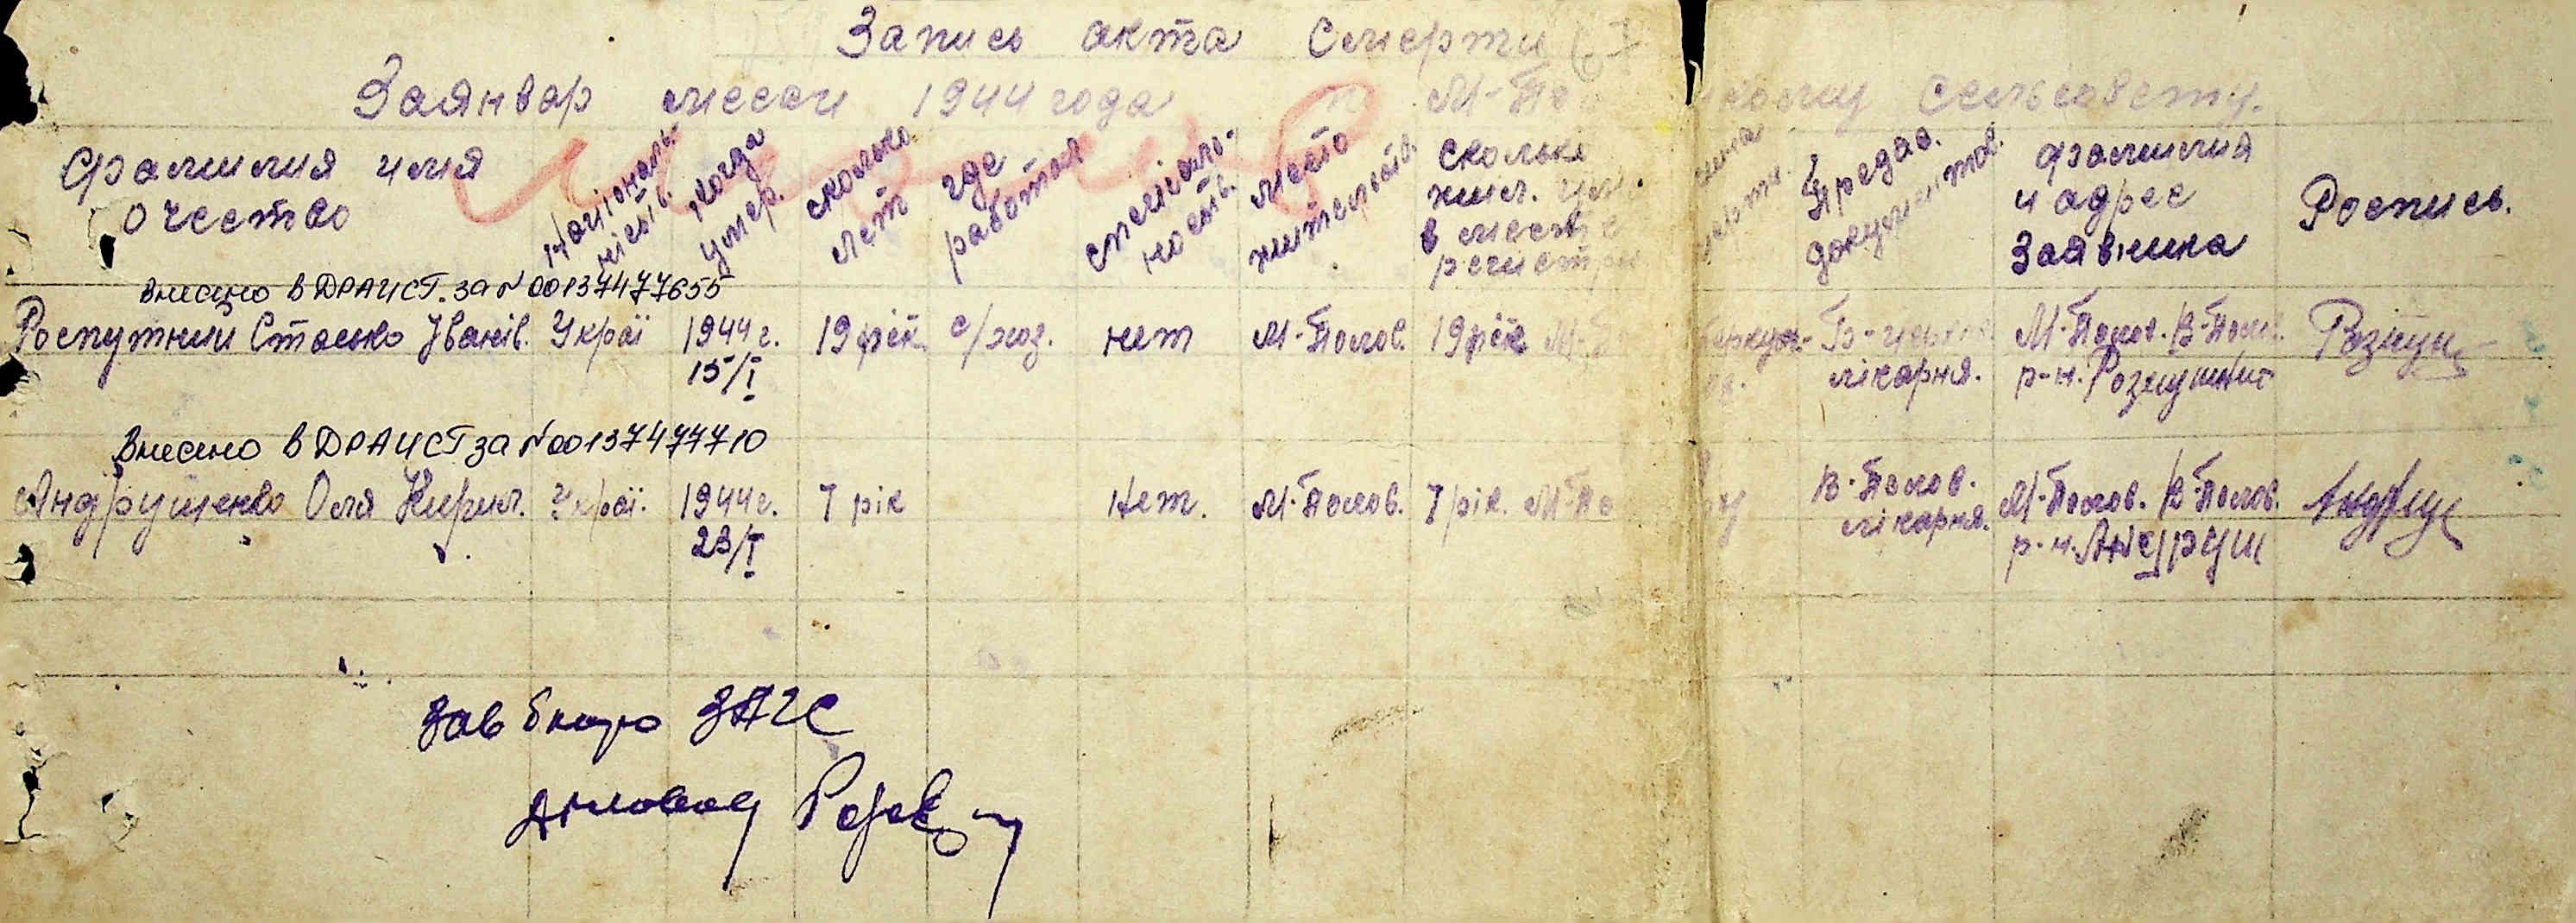 Запись акта Смерти
Заянвар месеси 1944 года М-По кому сельсовету.
Фамилия имя очество
Національ ність.
когда умер.
сколько лет
где работал
спеціаль- ность.
место жительств.
Сколько жил. в месте регистри
Предяв. документов.
Фамилия и адрес Заявника
Роспись.
Внесено в ДРАЦСТ. за № 00137477655
Роспутний Стасько Іванів. Украї 1944 г. 19 рік с/хоз. нет М-Полов. 19 рік М- Б-церков М-Полов. В-Полов. Розпут
15/I лікарня. р-н. Розпутний
Внесено в ДРАЦСТ за № 00137477710
Андрущенко Оля Кирил. Украї. 1944 г. 7 рік Нет. М-Полов. 7 рік. М-По В-Полов. М-Полов. В-Полов. Андрущ
23/I лікарня. р-н. Андрущ
Зав бюро ЗАГС
Діловод